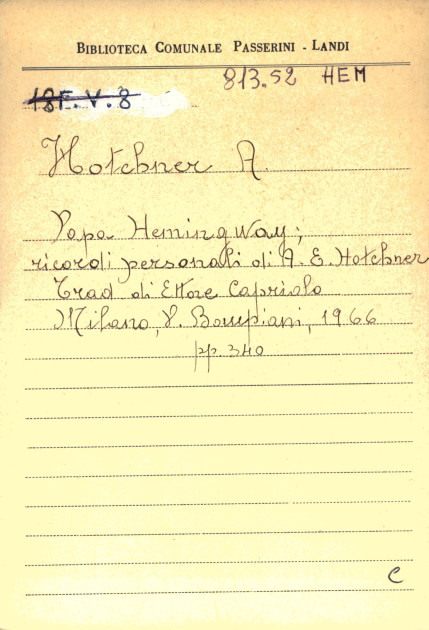 BIBLIOTECA COMUNALE PASSERINI - LANDI
813.52 HEM
18F.V.8
Hotchner A.
Papa Hemingway;
ricordi personali di A. E. Hotchner
Trad di Ettore Capriolo
Milano, V. Bompiani, 1966
pp. 340
C